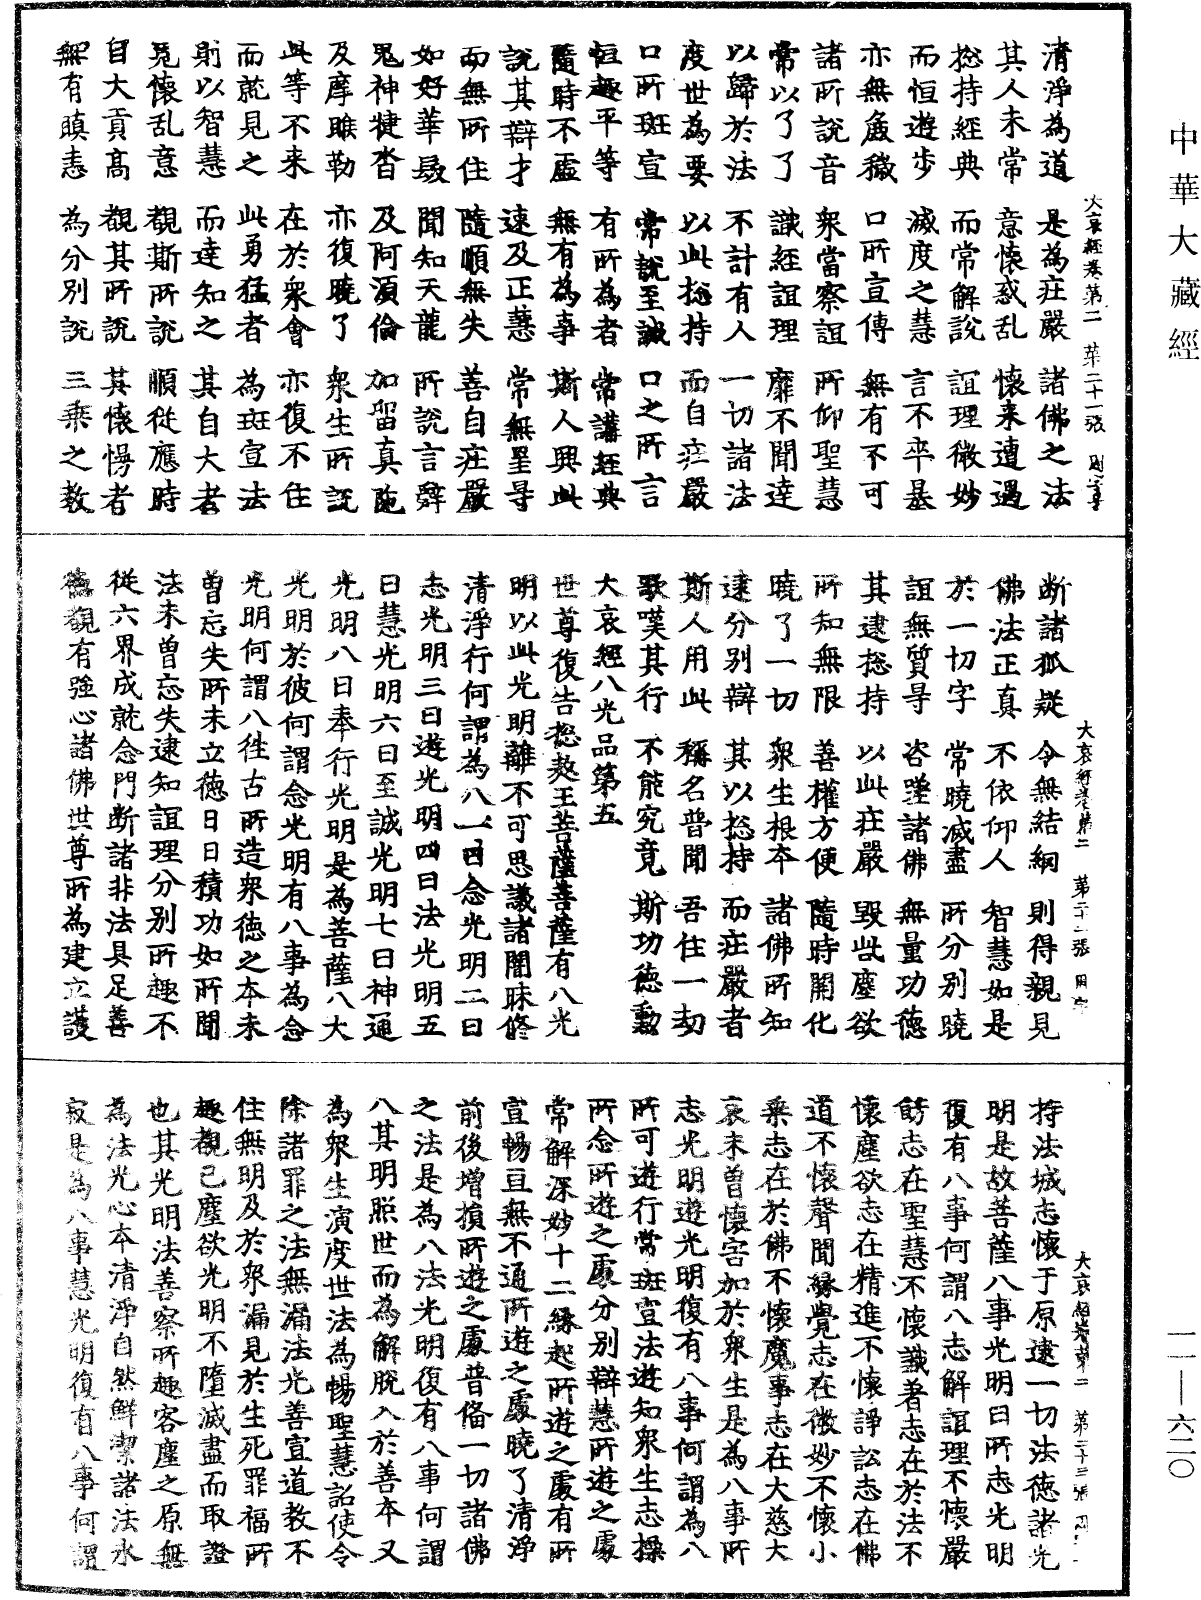 中華大藏經
清淨為道　是為莊嚴　諸佛之法
其人未常　意懷惑乱　懷来遭遇
捴持經典　而常解說　誼理微妙
而恒遊步　滅度之慧　言不卒暴
亦無麁穢　口所宣傳　無有不可
諸所說音　衆當察誼　所仰聖慧
常以了了　識經誼理　靡不聞達
以歸於法　不計有人　一切諸法
度世為要　以此捴持　而自莊嚴
口所班宣　常說至誠　口之所言
恒趣平等　有所為者　常講經典
隨時不虛　無有為事　斯人興此
說其辯才　速及正慧　常無罣㝵
而無所住　隨順無失　善自莊嚴
如好華鬘　聞知天龍　所說言辞
鬼神揵沓　及阿須倫　加留真陁
及摩睺勒　亦復曉了　衆生所說
此等不来　在於衆會　亦復不住
而就見之　此勇猛者　為班宣法
則以智慧　而達知之　其自大者
見懷乱意　觀斯所說　順從應時
自大貢高　觀其所說　其懷慢者
無有瞋恚　為分別說　三乗之教
大哀經卷第二　第二十一張
断諸狐疑　令無結網　則得親見
佛法正真　不依仰人　智慧如是
於一切字　常曉滅盡　所分別曉
誼無質㝵　咨嗟諸佛　無量功德
其逮捴持　以此莊嚴　毀呰塵欲
所知無限　善權方便　隨時開化
曉了一切　衆生根本　諸佛所知
逮分別辯　其以捴持　而莊嚴者
斯人用此　稱名普聞　吾住一劫
歌嘆其行　不能究竟　斯功德勳
大哀經八光品第五
世尊復告捴敖王菩薩菩薩有八光
明以此光明離不可思議諸闇昧修
清淨行何謂為八一曰念光明二曰
志光明三曰遊光明四曰法光明五
曰慧光明六曰至誠光明七曰神通
光明八曰奉行光明是為菩薩八大
光明於彼何謂念光明有八事為念
光明何謂八徃古所造衆德之本未
曾忘失所未立德日日積功如所聞
法未曾忘失逮知誼理分別所趣不
從六界成就念門断諸非法具足善
德觀有強心諸佛世尊所為建立護
大哀經卷第二　第二十二張
持法城志懷于原逮一切法德諸光
明是故菩薩八事光明曰所志光明
復有八事何謂八志解誼理不懷嚴
餝志在聖慧不懷識著志在於法不
懷塵欲志在精進不懷諍訟志在佛
道不懷聲聞緣覺志在微妙不懷小
乗志在於佛不懷魔事志在大慈大
哀未曾懷害加於衆生是為八事所
志光明遊光明復有八事何謂為八
所可遊行常班宣法遊知衆生志操
所念所遊之處分別辯慧所遊之處
常解深妙十二緣起所遊之處有所
宣暢亘無不通所遊之處曉了清淨
前後增損所遊之處普俻一切諸佛
之法是為八法光明復有八事何謂
八其明照世而為解脫入於善本又
為衆生演度世法為暢聖慧詔使令
除諸罪之法無漏法光善宣道教不
住無明及於衆漏見於生死罪福所
趣觀己塵欲光明不墮滅盡而取證
也其光明法善察所趣客塵之原無
為法光心本清淨自然鮮潔諸法永
寂是為八事慧光明復有八事何謂
大哀經卷第二　第二十三張
一一—六二〇